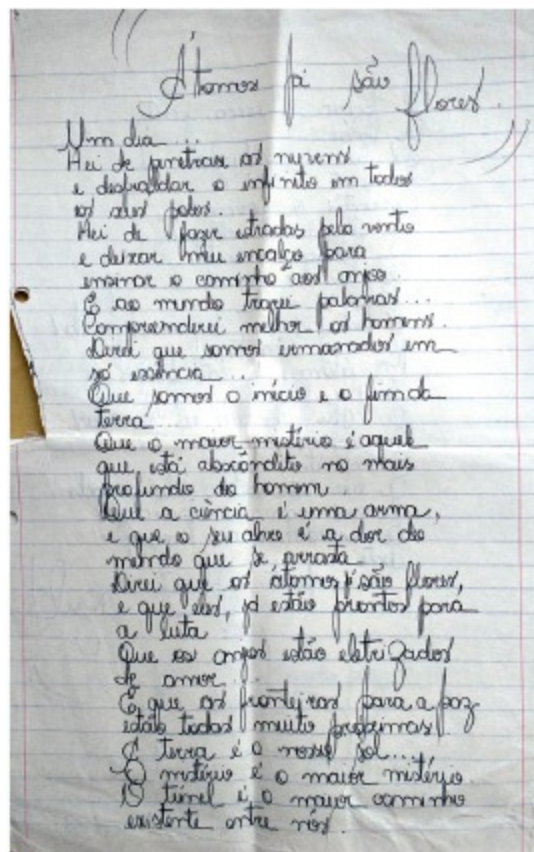 "Átomos já são flores."
Um dia...
Hei de penetrar as nuvens
e desfraldar o infinito em todos
os seus polos.
Hei de fazer estradas pelo vento
e deixar meu encalço para
ensinar o caminho aos anjos.
E ao mundo trarei palavras...
Compreenderei melhor os homens.
Direi que somos irmanados em
só essência...
Que somos o início e o fim da
terra
Que o maior mistério é aquele
que está abscôndito no mais
profundo do homem
Que a ciência é uma arma,
e que o seu alvo é a dor do
mundo que se arrasta
Direi que os átomos já são flores,
e que eles, já estão prontos para
a luta
Que os anjos estão eletrizados
de amor
E que as fronteiras para a paz
estão todas muito próximas.
A terra é o nosso sol...
O mistério é o maior mistério.
O túnel é o maior caminho
existente entre nós.